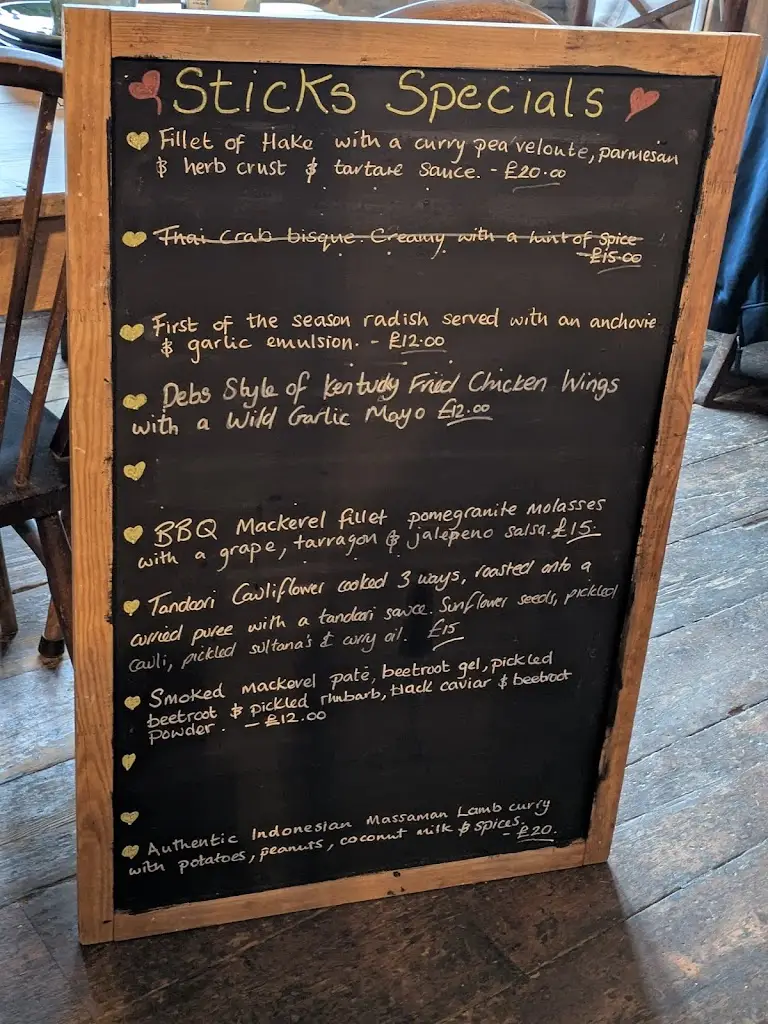 Sticks Specials
Fillet of Hake with a curry pea veloute, parmesan
& herb crust & tartare sauce. - £20.00
Thai crab bisque. Creamy with a hint of spice
- £15.00
First of the season radish served with an anchovie
& garlic emulsion. - £12.00
Debs Style of Kentudy Fried Chicken Wings
with a Wild Garlic Mayo £12.00
BBQ Mackerel fillet pomegranite molasses
with a grape, tarragon & jalepeno salsa. £15.
Tandoori Cauliflower cooked 3 ways, roasted onto a
curried puree with a tandoori sauce. Sunflower seeds, pickled
cauli, pickled sultana's & curry oil. £15
Smoked mackerel pate, beetroot gel, pickled
beetroot & pickled rhubarb, black caviar & beetroot
powder. - £12.00
Authentic Indonesian Massaman Lamb curry
with potatoes, peanuts, coconut milk & spices.
- £20.